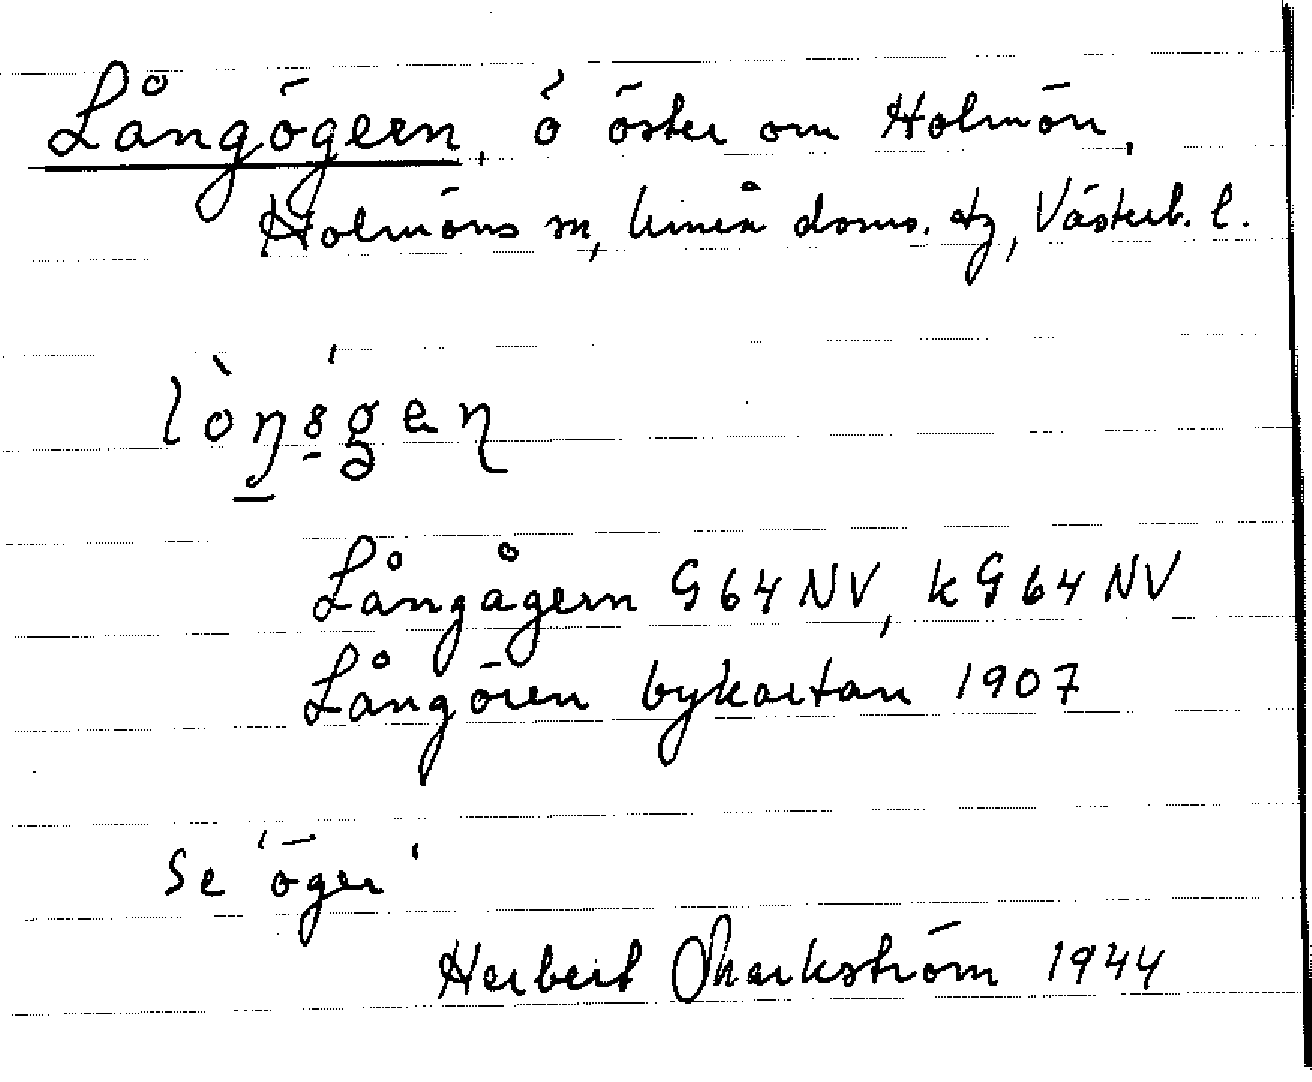 Långögern, ö öster om Holmön,
Holmöns sn, Umeå doms. tg, Västerb. l.
Långågern G 64 NV, k G 64 NV
Långören bykartan 1907
Se 'öger'
Herbert Markström 1944